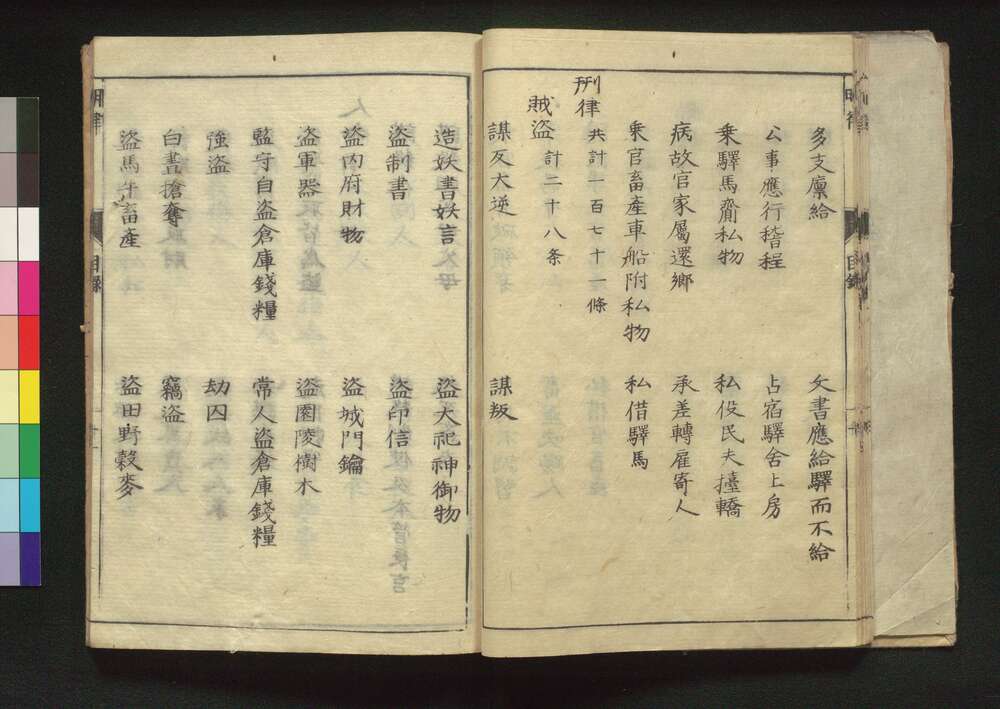 多支廪給
文書應給驛而不給
公事應行稽程
占宿驛舍上房
乗驛馬齎私物
私役民夫擡轎
病故官家屬還鄉
承差轉雇寄人
乗官畜產車船附私物
私借驛馬
刑律 共計一百七十一條
賊盜 計二十八条
謀反大逆
謀叛
造妖書妖言
盜大祀神御物
盜制書
盜印信
盜内府財物
盜城門鑰
盜軍器
盜園陵樹木
監守自盜倉庫錢糧
常人盜倉庫錢糧
強盜
劫囚
白晝搶奪
竊盜
盜馬牛畜產
盜田野榖麥
明律
目録